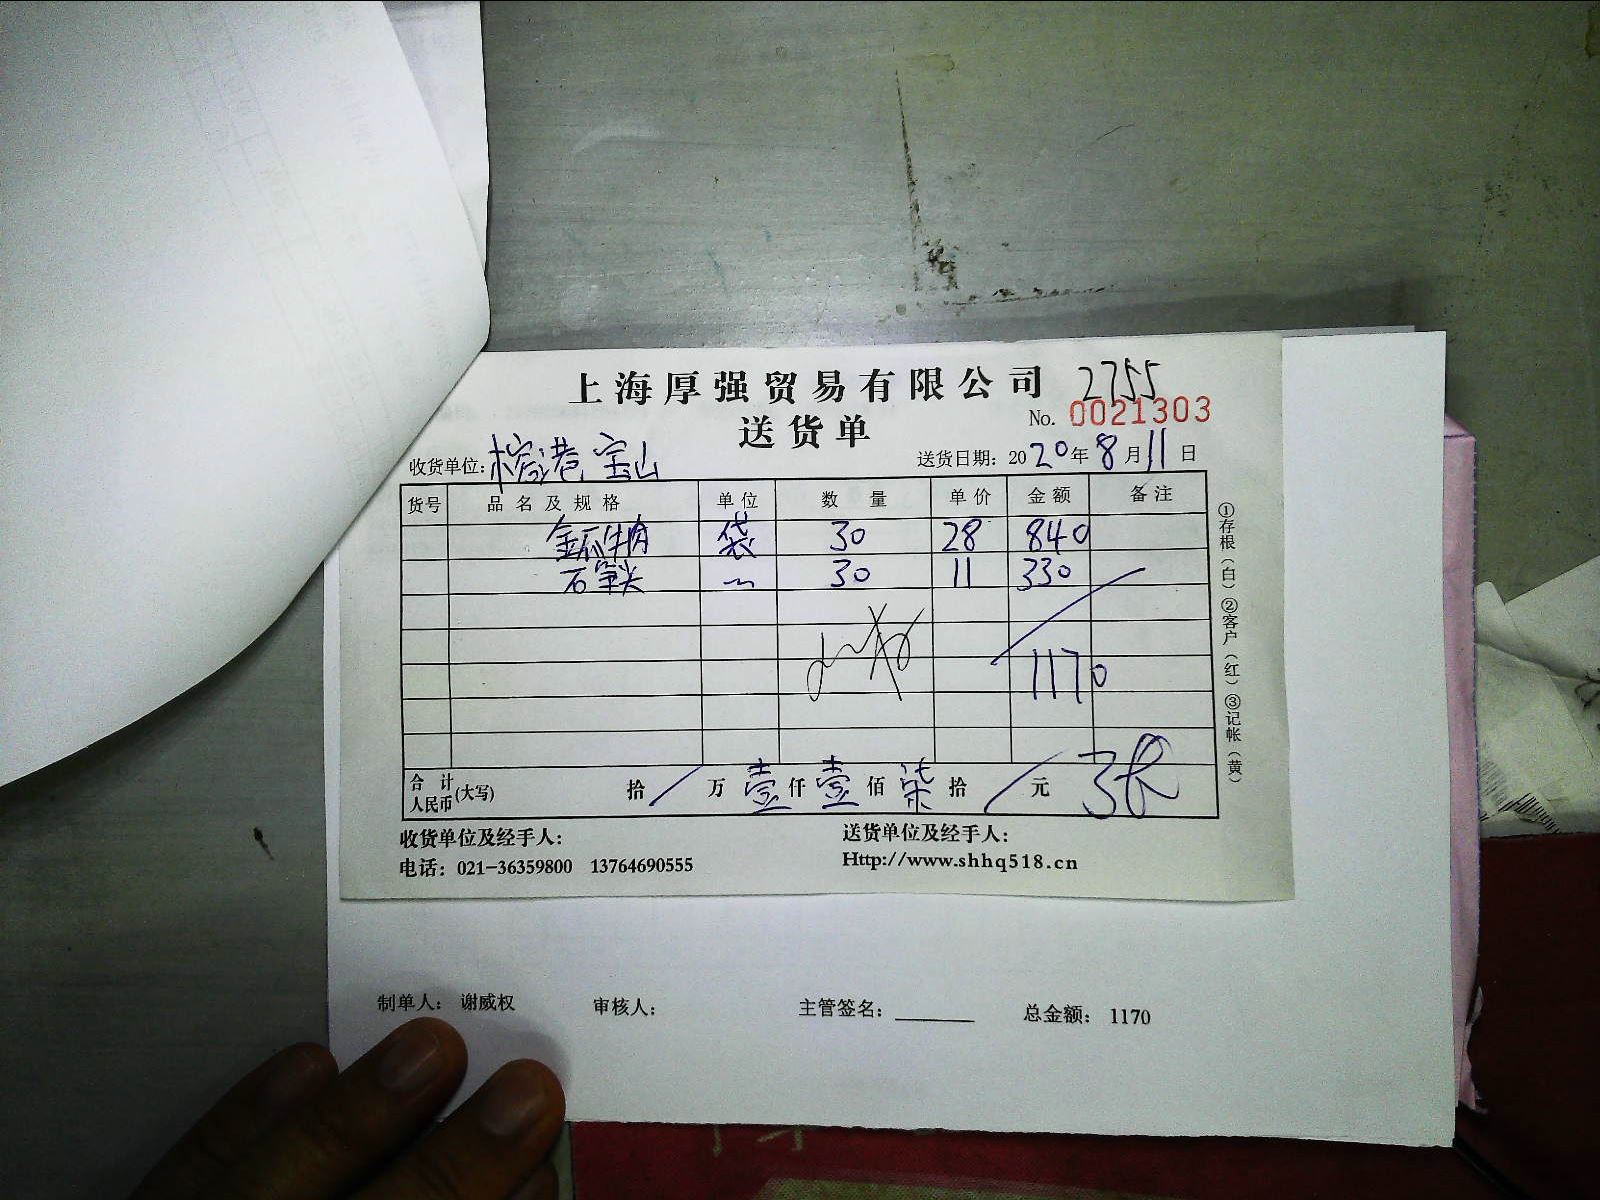 上海厚强贸易有限公司 2755
送货单 No. 0021303
收货单位: 榕港宝山 送货日期: 2020年8月11日
货号 品名及规格 单位 数量 单价 金额 备注
金瓜牛肉 袋 30 28 840
石笔尖 〃 30 11 330
1170
合计人民币(大写) 拾 / 万 壹 仟 壹 佰 柒 拾 / 元
收货单位及经手人: 送货单位及经手人:
电话: 021-36359800 13764690555 Http://www.shhq518.cn
①存根(白)②客户(红)③记帐(黄)
制单人: 谢威权 审核人: 主管签名: ______ 总金额: 1170